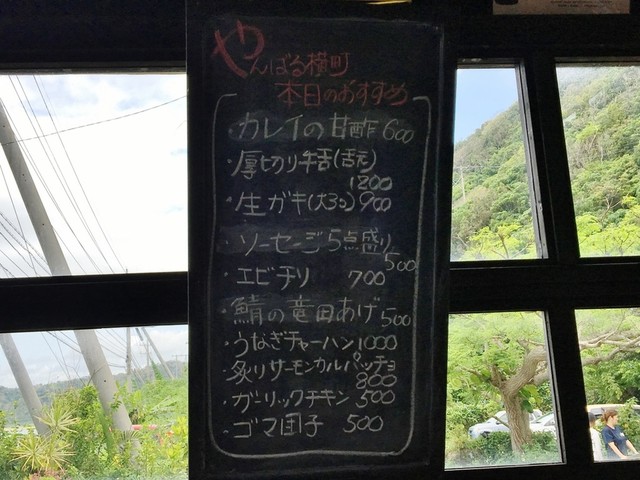 やんばる横町
本日のおすすめ
・カレイの甘酢 600
・厚切り牛舌(舌元)
1200
・生ガキ(大3コ) 900
・ソーセージ5点盛り
500
・エビチリ 700
・鯖の竜田あげ 500
・うなぎチャーハン 1000
・炙りサーモンカルパッチョ
800
・ガーリックチキン 500
・ゴマ団子 500